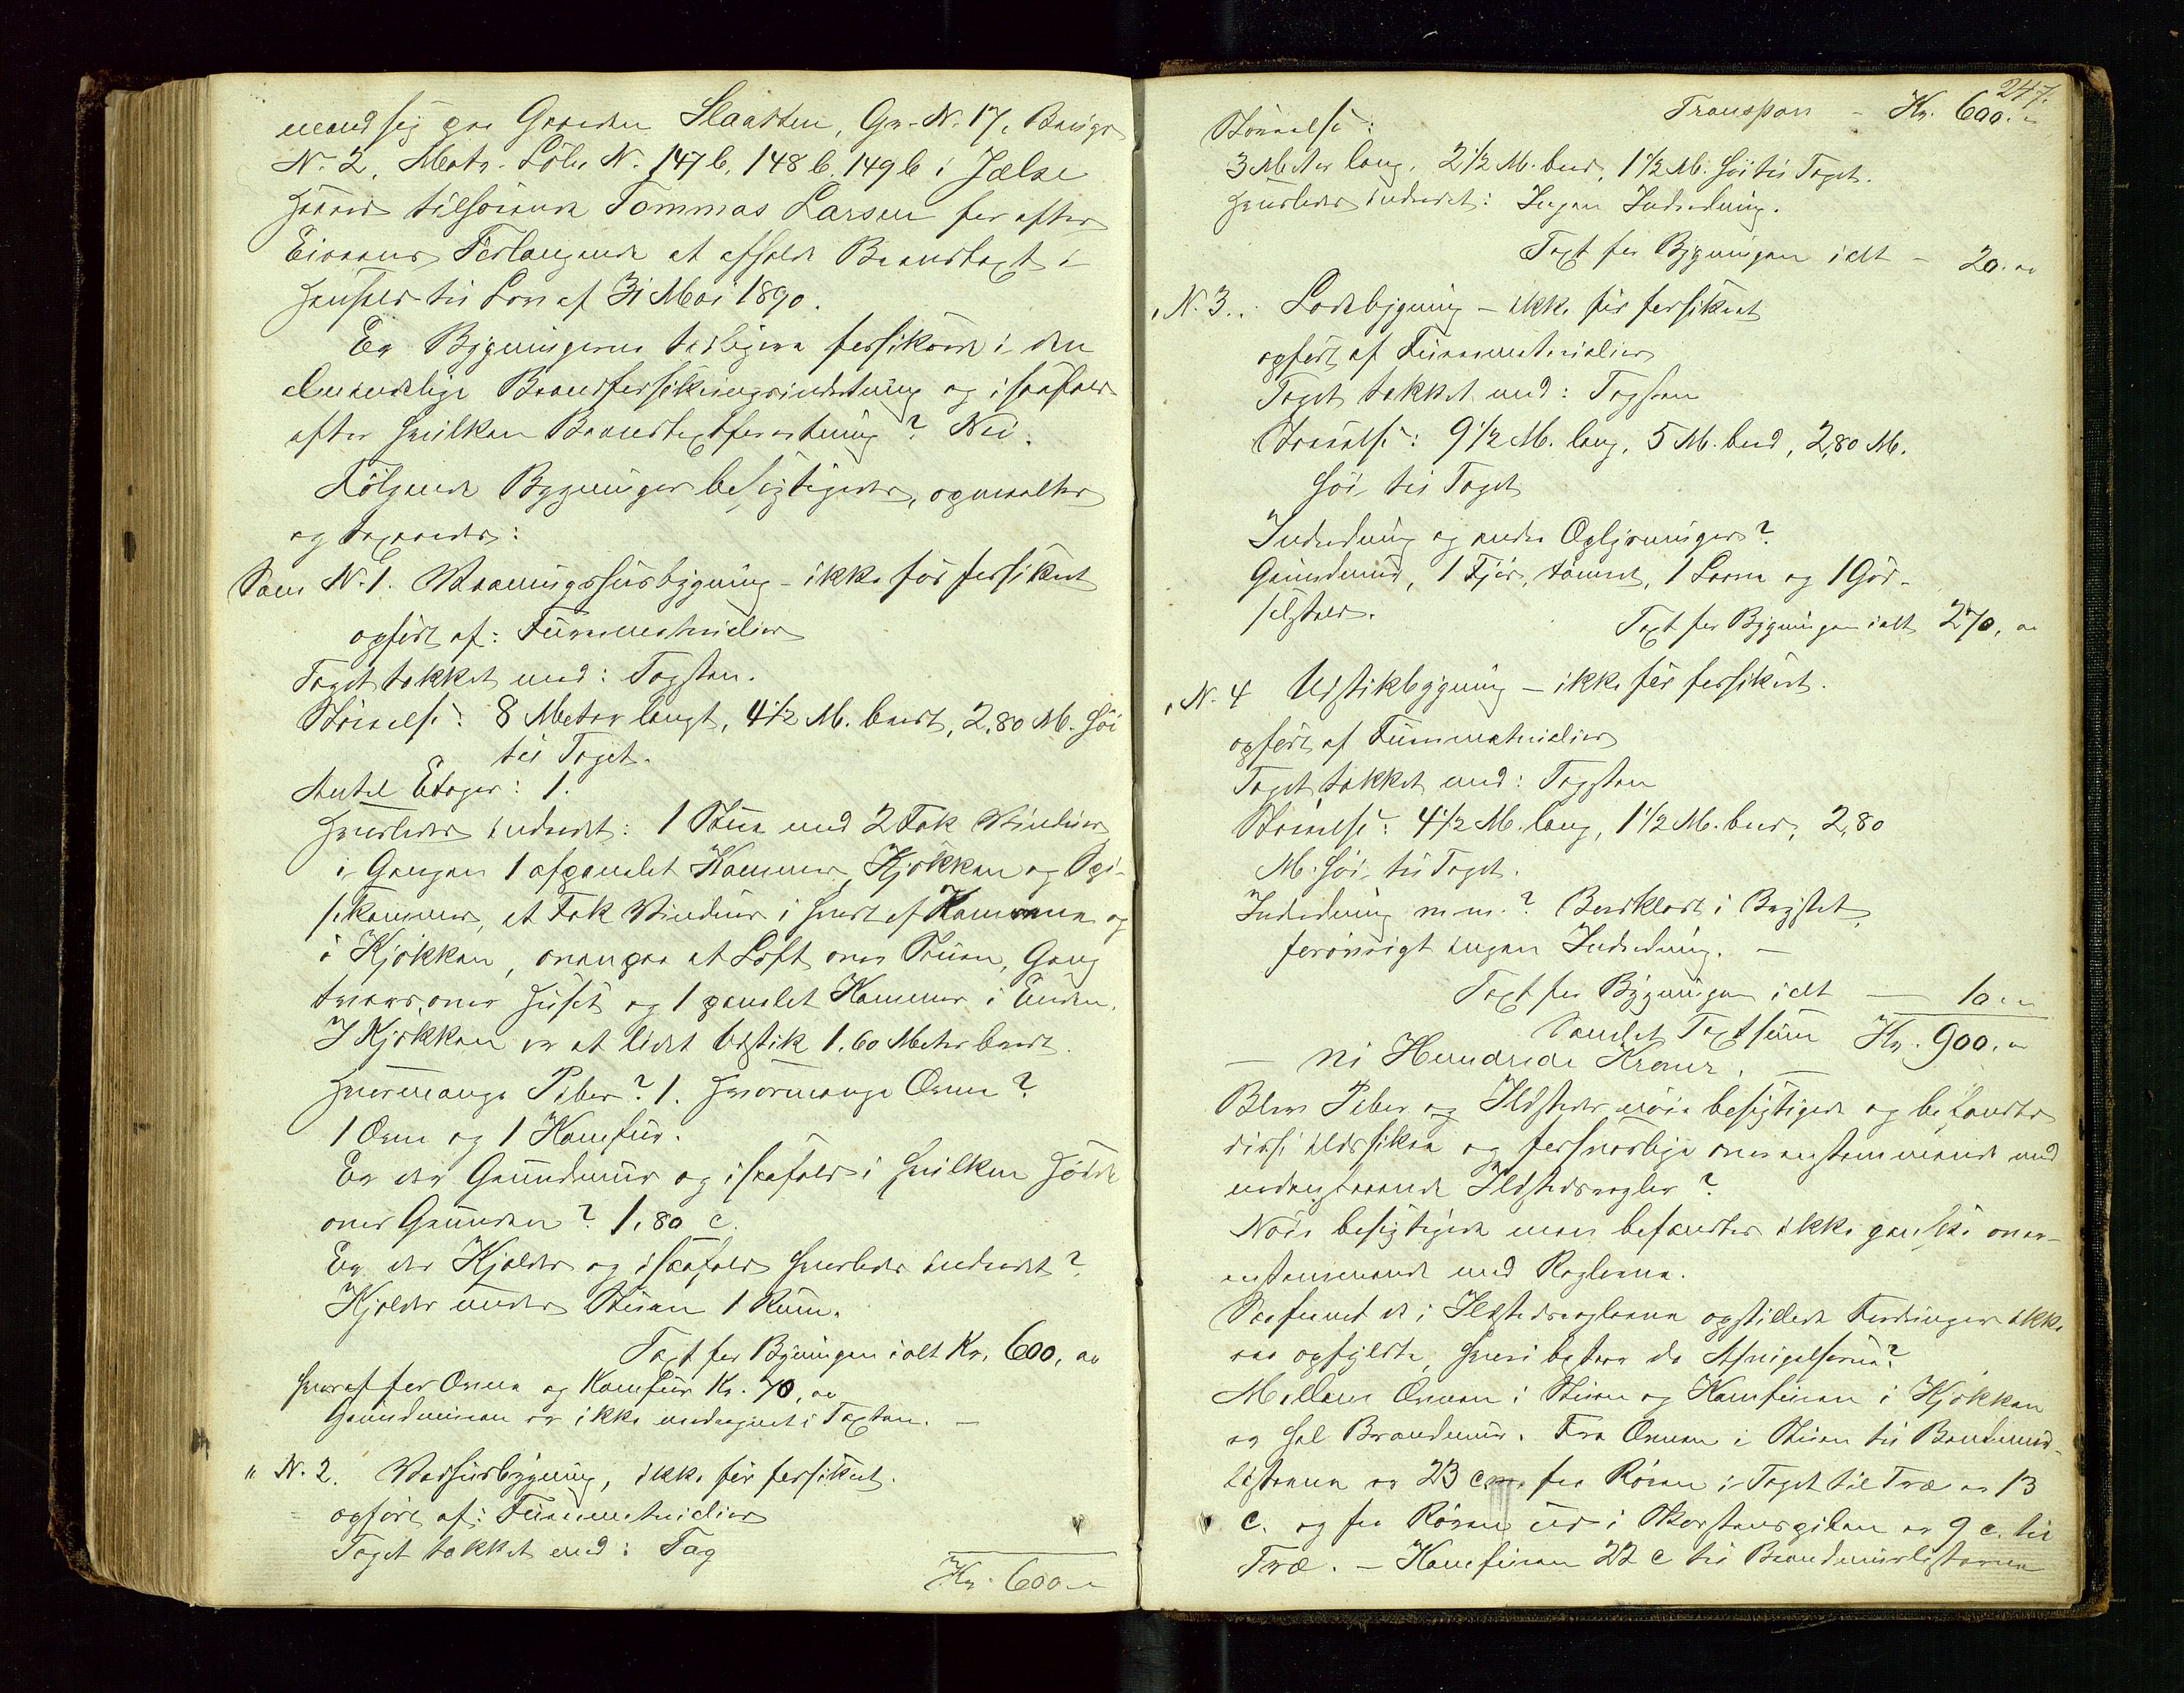 mend sig paa Gaarden Slaatten, Gr. N. 17, Brugs
N. 2, Matr. Löbe N. 147 b, 148 b, 149 b i Jelse
Herred tilhörende Tommas Larsen for efter
Eierens Forlangende at afholde Brandtaxt i
Henhold til Lov af 31 Mai 1890.
Er Bygningerne tidligere forsikrede i den
almindelige Brandforsikringsindretning og i saafald
efter hvilken Brandtaxtforretning? Nei.
Følgende Bygninger besigtigedes, opmaaltes
og taxeredes:
Som N. 1. Vaaningshusbygning - ikke før forsikret
opført af: Furumaterialier
Taget tækket med: Tagsten.
Størrelse: 8 Meter langt, 4 1/2 M. bredt, 2,80 M. høi
til Taget.
Antal Etager: 1.
Hvorledes indredet: 1 Stue med 2 Fak Vinduer
i Gangen 1 afpanelet Kammer, Kjøkken og Spi-
sekammer, et Fak Vinduer i hvert af Kammerne og
i Kjøkken, ovenpaa et Loft over Stuen, Gang
tværs over Huset og 1 panelet Kammer i Enden.
I Kjøkken er et lidet Udstik 1,60 Meter bredt.
Hvormange Piber? 1. Hvormange Ovne?
1 Ovn og 1 Komfur.
Er der Grundmur og i saafald i hvilken Høide
over Grunden? 1,80 c.
Er der Kjælder og i saafald hvorledes indredet?
Kjælder under Stuen 1 Rum.
Taxt for Bygningen ialt Kr. 600, 00
hvoraf for Ovne og Komfur Kr. 70, 00
Grundmuren er ikke medregnet i Taxten. —
" N. 2. Vedhusbygning, ikke før forsikret.
opført af: Furumaterialier
Taget tækket med: Tag
Kr. 600 "
247.
Transport - Kr. 600. "
Størrelse:
3 Meter lang, 2 1/2 M. bred, 1 1/2 M. høi til Taget.
Hvorledes indredet: Ingen Indredning.
Taxt for Bygningen ialt - 20. 00
" N. 3. Ladebygning - ikke før forsikret
opført af Furumaterialier
Taget tækket med: Tagsten
Størrelse: 9 1/2 M. lang, 5 M. bred, 2,80 M.
høi til Taget
Indredning og andre Oplysninger?
Grundmur, 1 Fjøs, tømret, 1 Laave og 1 Gød-
selstald.
Taxt for Bygningen ialt 270, 00
" N. 4 Udstikbygning - ikke før forsikret.
opført af Furumaterialier
Taget tækket med: Tagsten
Størrelse: 4 1/2 M. lang, 1 1/2 M. bred, 2,80
M. høi til Taget.
Indredning m.m.? Bordklædt i Brystet,
forøvrigt ingen Indredning. —
Taxt for Bygningen ialt — 10 "
Samlet Taxtsum Kr. 900. "
— Ni Hundrede Kroner. —
Blev Piber og Ildsteder nøie besigtigede og befandtes
disse ildsikre og forsvarlige overensstemmende med
nedenstaaende Ildstedsregler?
Nøie besigtigede men befandtes ikke ganske over-
ensstemmende med Reglerne.
Saafremt de i Ildstedsreglerne opstillede Fordringer ikke
ere opfyldte, hvori bestaar da Afvigelserne?
Mellem Ovnen i Stuen og Komfuren i Kjøkken
er hel Brandmur. Fra Ovnen i Stuen til Brandmur-
listerne er 23 cm. fra Røren i Taget til Træ er 13
c. og fra Røren ud i Skorstenspiben er 9 c. til
Træ. - Komfuren 22 c til Brandmurlisterne